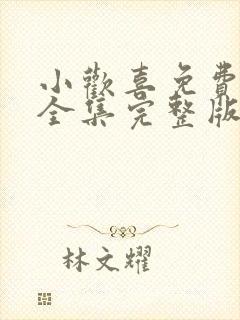 小歡喜免費
全集完整版
林文耀